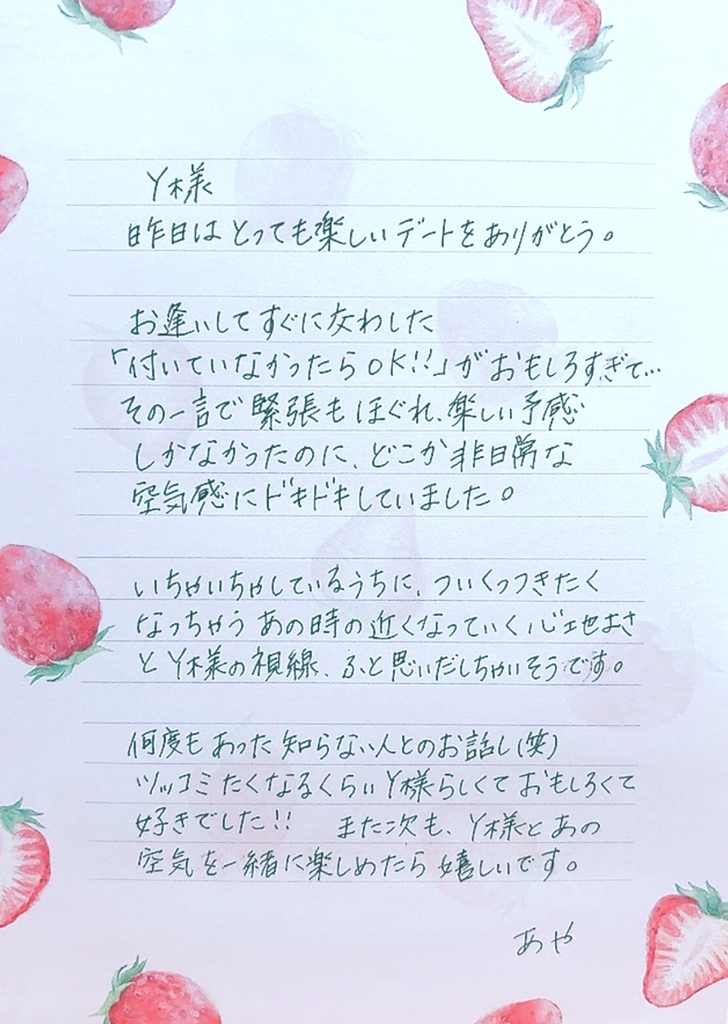 Y様
昨日はとっても楽しいデートをありがとう。
お逢いしてすぐに交わした
「付いていなかったらOK!!」がおもしろすぎて…
その一言で緊張もほぐれ、楽しい予感
しかなかったのに、どこか非日常な
空気感にドキドキしていました。
いちゃいちゃしているうちに、ついくっつきたく
なっちゃうあの時の近くなっていく心地よさ
とY様の視線、ふと思いだしちゃいそうです。
何度もあった知らない人とのお話し(笑)
ツッコミたくなるくらいY様らしくておもしろくて
好きでした!! また次も、Y様とあの
空気を一緒に楽しめたら嬉しいです。
あや